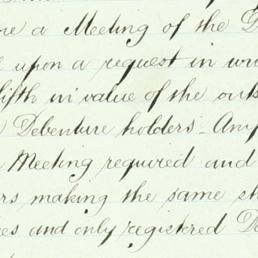 a Meeting of the
upon a request in
fifth in value of the
Debenture holders. Any
Meeting required and
making the same
and only registered